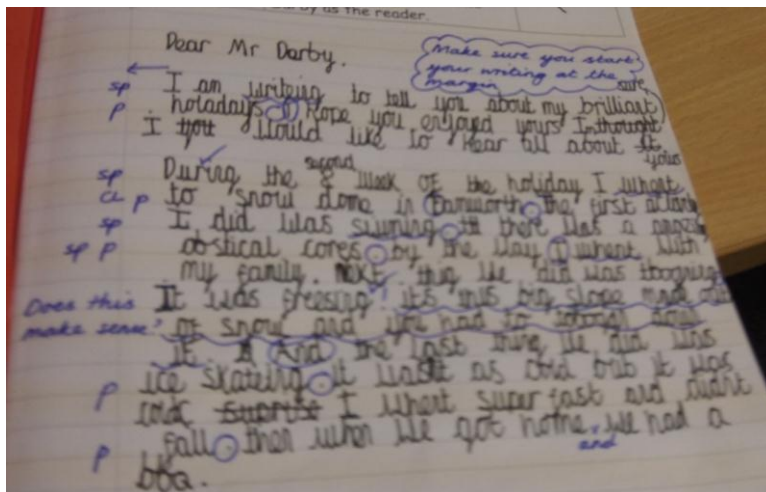 by as the reader.
Dear Mr Darby.
Make sure you start
your writing at the
margin
sp I am writeing to tell you about my brilliant
p holadays I hope you enjoyed yours I thought
I you would like to hear all about it
yours
second
sp During the week of the holiday I whent
cl p to snow dome in tamworth the first
sp I did was siwming in there was a
sp p obstical cores by the way I whent with
my family. Next thing we did was
It was freesing it's this big slope mad out
Does this
make sense? of snow and you had to down
it. And the last thing we did was
p ice skateing it wasnt as cold but it was
cold I whent super fast and didnt
p fall then when we got home we had a
and
bbq.